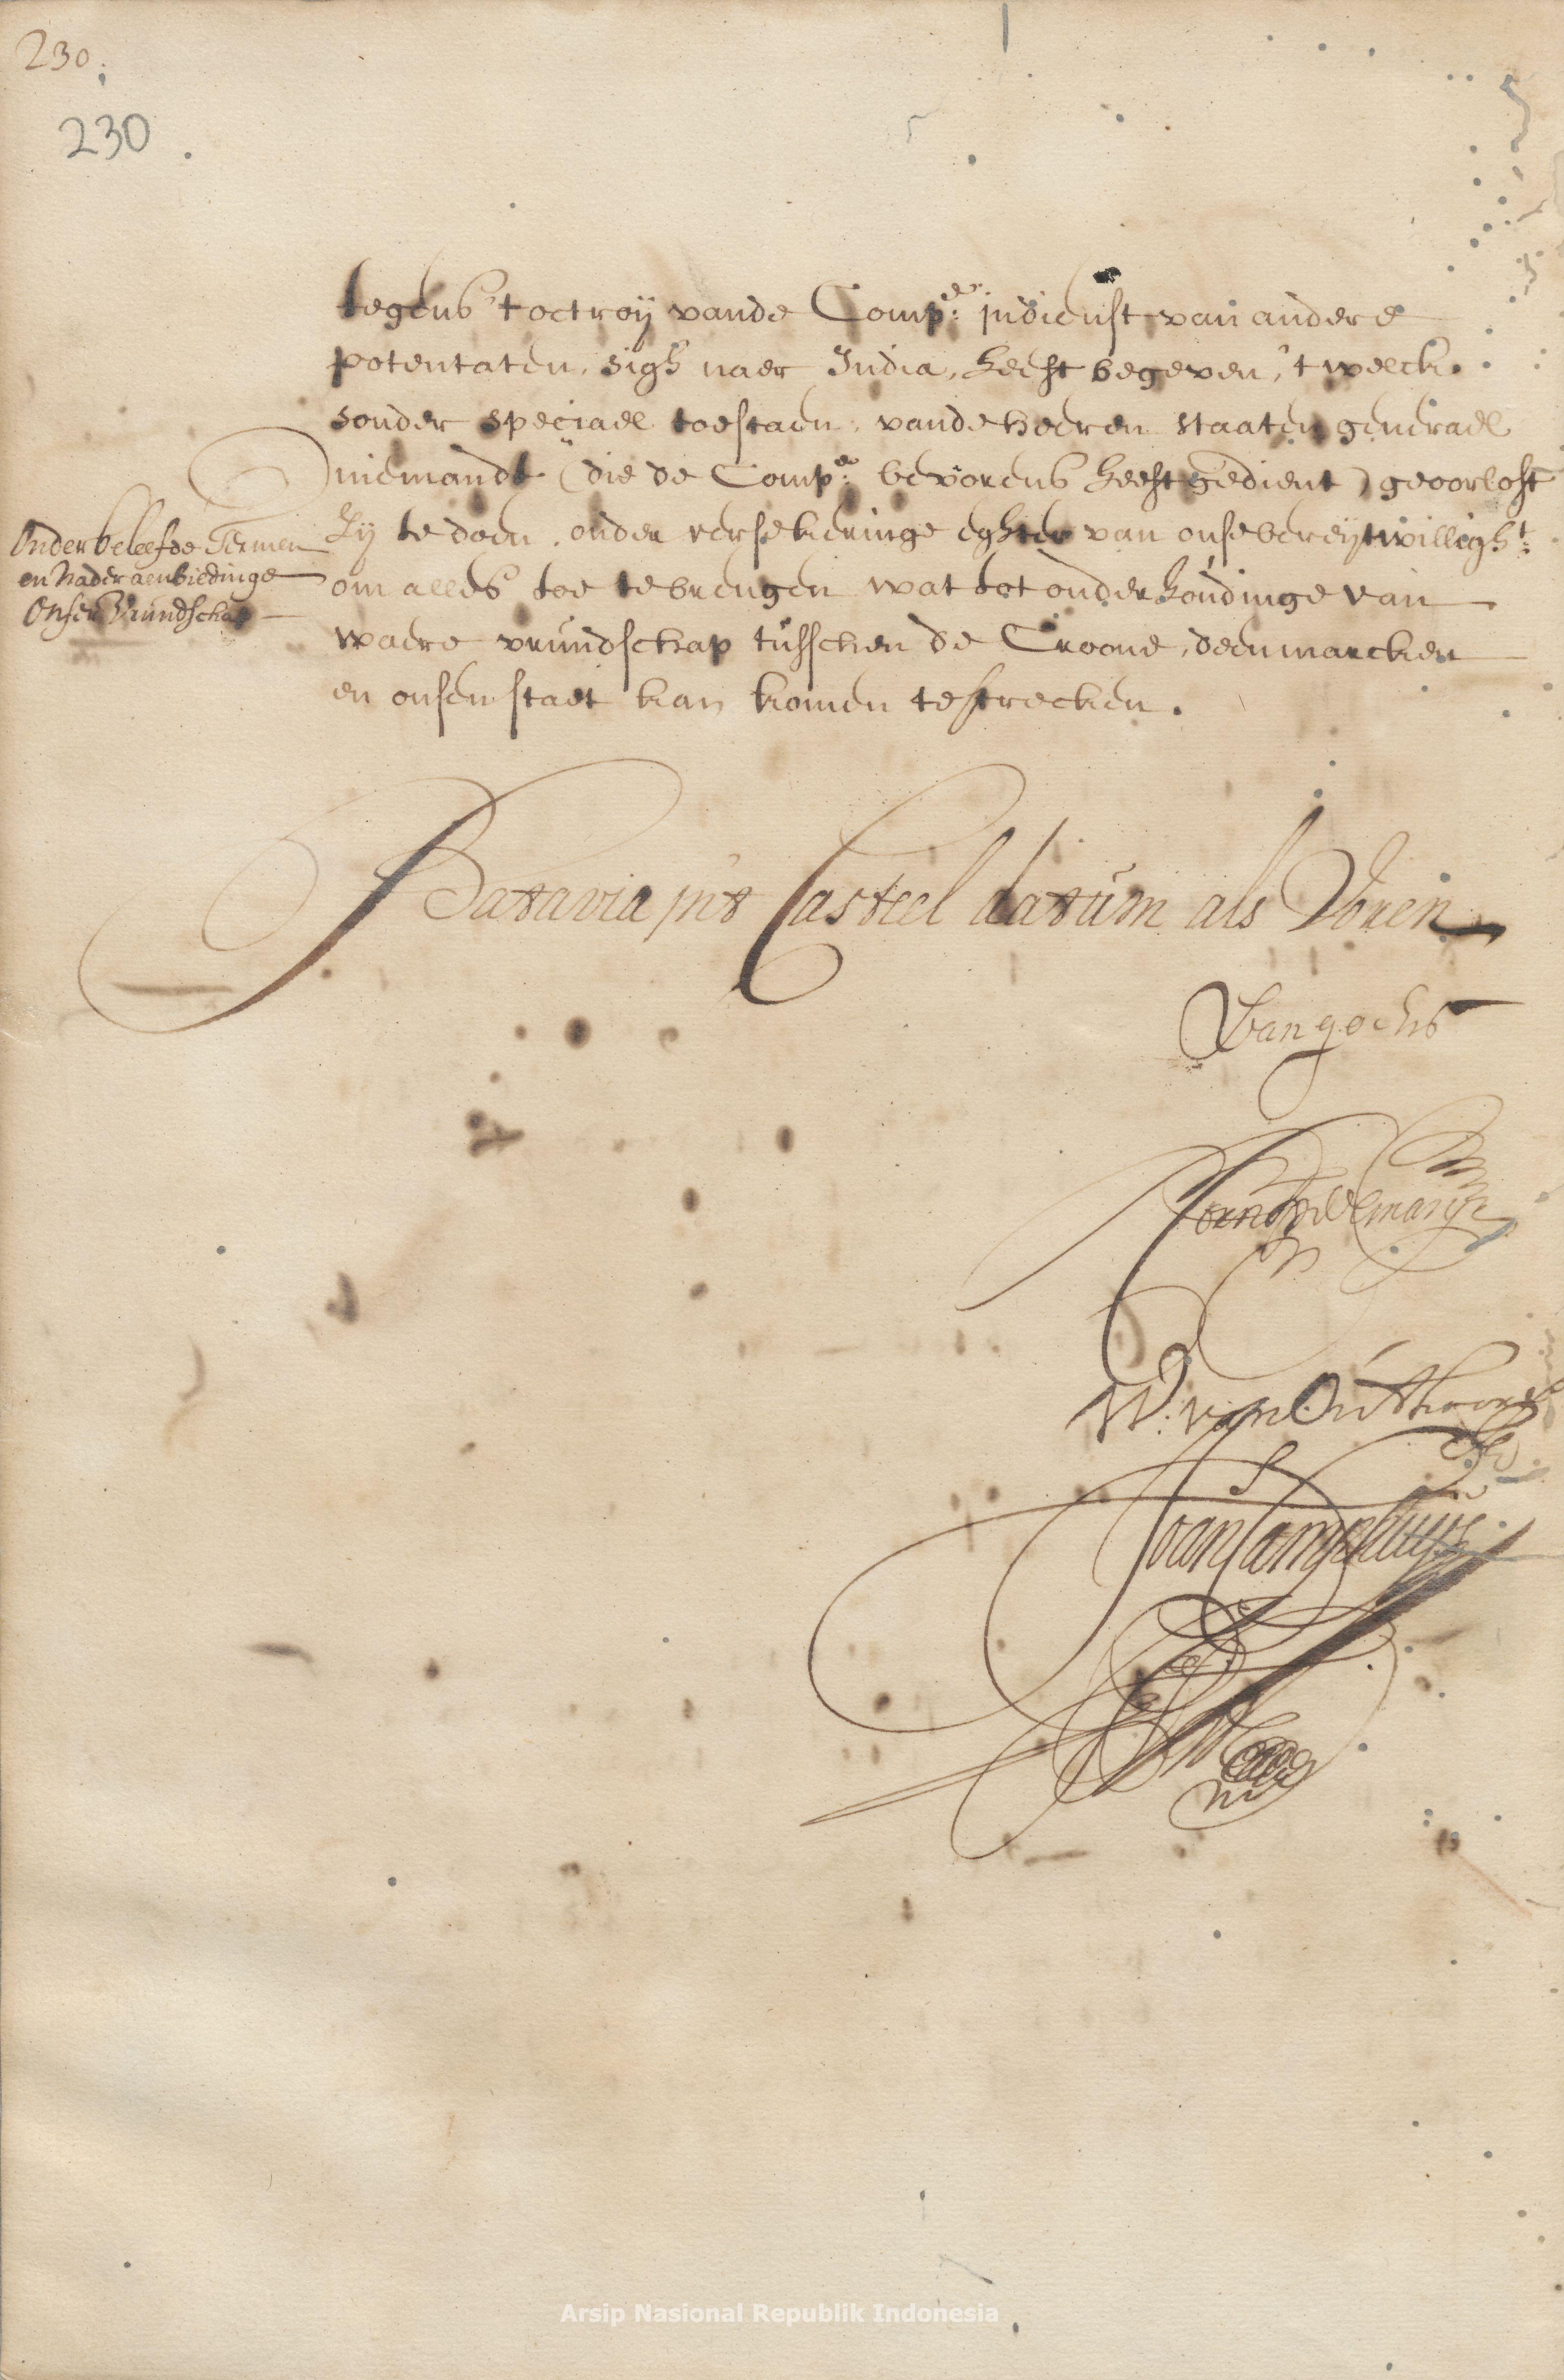 230.
230
tegens 't octroij vande Comp:e in dienst van andere
potentaten, sigh naer India, heeft begeven, 't welck
sonder speciael toestaen, vande heeren Staaten generael
niemandt (die de Comp:e bevorens heeft gedient) geoorloft
zij te doen, onder versekeringe eghter van onse bereijtwilligh:t
om alles toe te brengen wat tot onderhoudinge van
waere vrundschap tusschen de Croone, deenmarcken
en onsen staet kan komen te strecken.
Onder beleefde Termen
en Nader aenbiedinge
Onser Vrundschap
Batavia in't Casteel datum als Voren
Van goens
W: van Outhoorn
Joan Camphuijs
Arsip Nasional Republik Indonesia